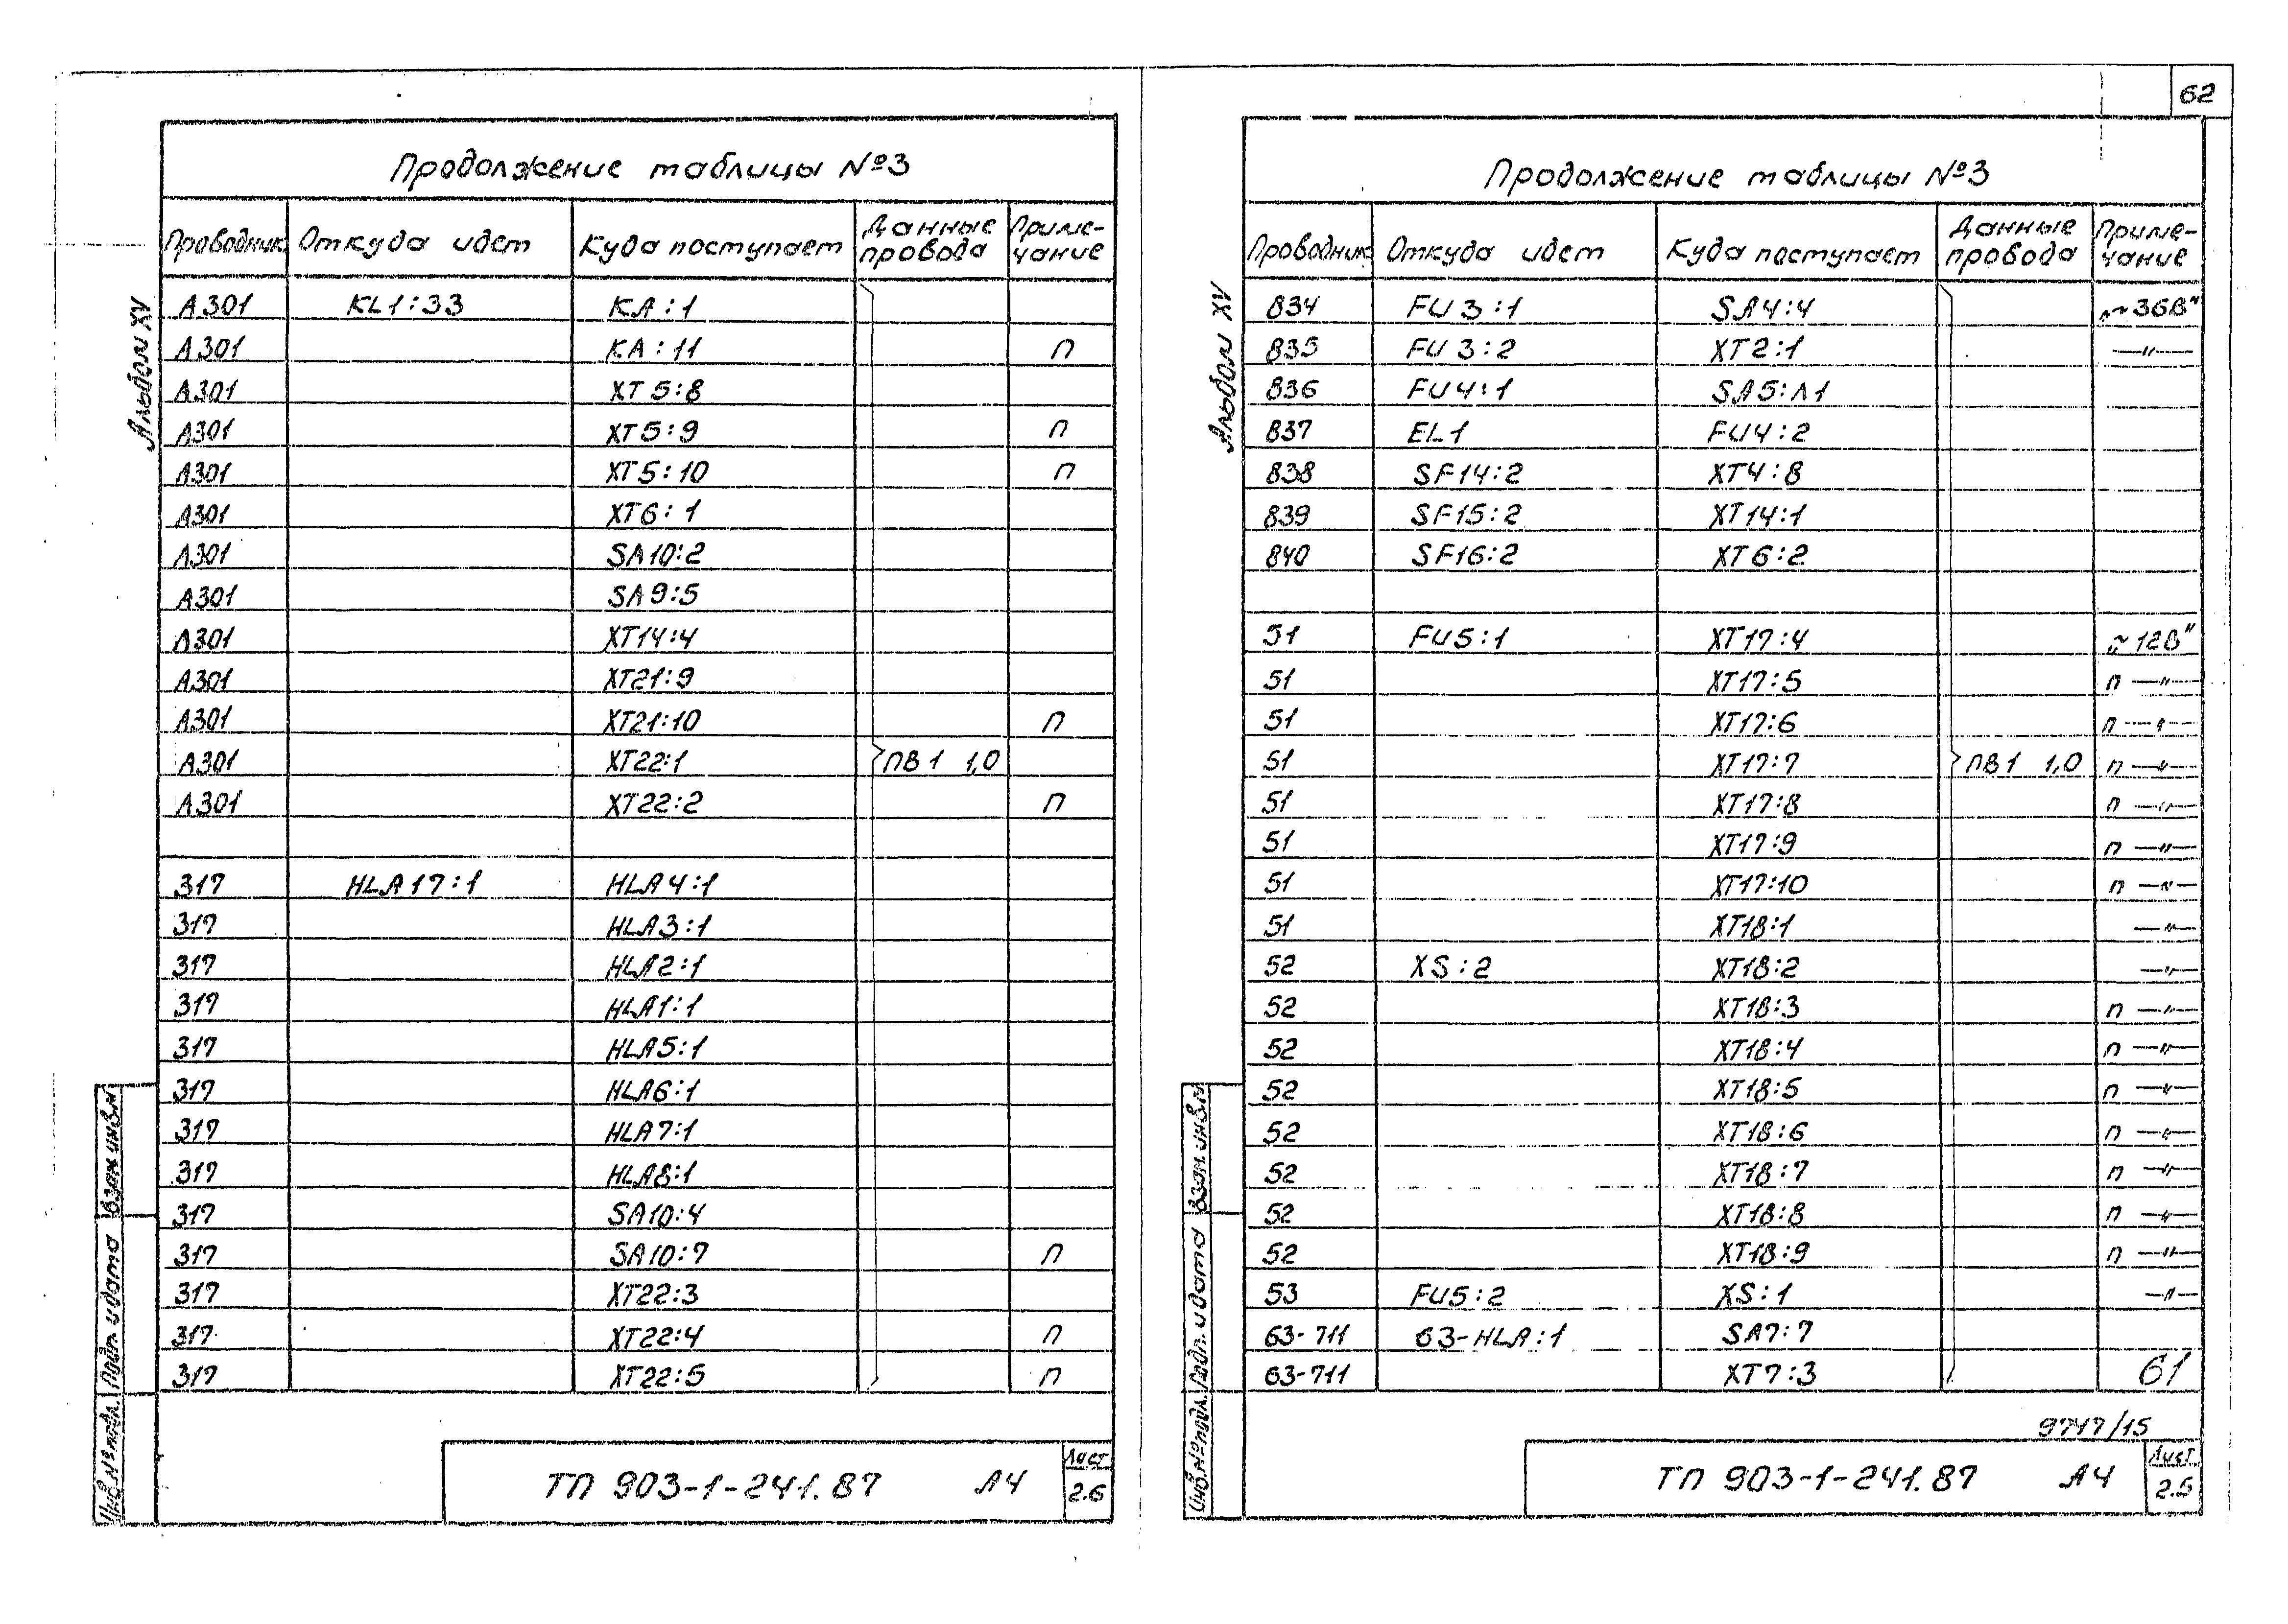 62
Альбом XV
Продолжение таблицы №3
Проводник Откуда идет Куда поступает Данные провода Приме-чание
А301 KL1:33 KA:1
А301 KA:11 П
А301 XT5:8
А301 XT5:9 П
А301 XT5:10 П
А301 XT6:1
А301 SA10:2
А301 SA9:5
А301 XT14:4
А301 XT21:9
А301 XT21:10 П
А301 XT22:1 ПВ1 1,0
А301 XT22:2 П
317 HLA17:1 HLA4:1
317 HLA3:1
317 HLA2:1
317 HLA1:1
317 HLA5:1
317 HLA6:1
317 HLA7:1
317 HLA8:1
317 SA10:4
317 SA10:7 П
317 XT22:3
317 XT22:4 П
317 XT22:5 П
Инв.№ подл. Подп. и дата Взам инв.N
ТП 903-1-241.87 Л4 Лист 2.6
Альбом XV
Продолжение таблицы №3
Проводник Откуда идет Куда поступает Данные провода Приме-чание
834 FU3:1 SA4:4 „~36В"
835 FU3:2 XT2:1 —"—
836 FU4:1 SA5:Л1
837 EL1 FU4:2
838 SF14:2 XT4:8
839 SF15:2 XT14:1
840 SF16:2 XT6:2
51 FU5:1 XT17:4 „~12В"
51 XT17:5 П —"—
51 XT17:6 П —"—
51 XT17:7 ПВ1 1,0 П —"—
51 XT17:8 П —"—
51 XT17:9 П —"—
51 XT17:10 П —"—
51 XT18:1 —"—
52 XS:2 XT18:2 —"—
52 XT18:3 П —"—
52 XT18:4 П —"—
52 XT18:5 П —"—
52 XT18:6 П —"—
52 XT18:7 П —"—
52 XT18:8 П —"—
52 XT18:9 П —"—
53 FU5:2 XS:1 —"—
63-711 63-HLA:1 SA7:7
63-711 XT7:3 61
9747/15
Инв.№ подл. Подп. и дата Взам. инв.N
ТП 903-1-241.87 Л4 Лист 2.5